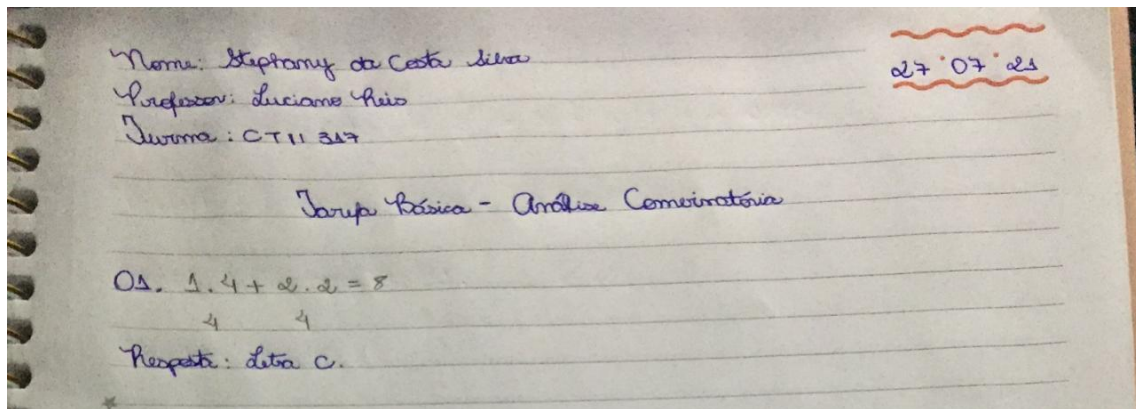 Nome: Stephany da Costa Silva
27 · 07 · 21
Professor: Luciano Reis
Turma: CTII 317
Tarefa Básica - Análise Combinatória
01. 1.4 + 2.2 = 8
4 4
Resposta: Letra C.